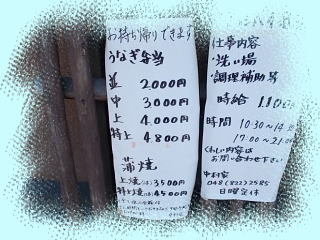 お持ち帰りできます
うなぎ弁当
並 2,000円
中 3,000円
上 4,000円
特上 4,800円
蒲焼
上焼 3500円
特上焼 4500円
仕事内容
洗い場
調理補助等
時給
時間 10:30〜14
17:00〜21:00
くわしい内容は
お問い合わせ下さい
中村家
048(822)2585
日曜定休